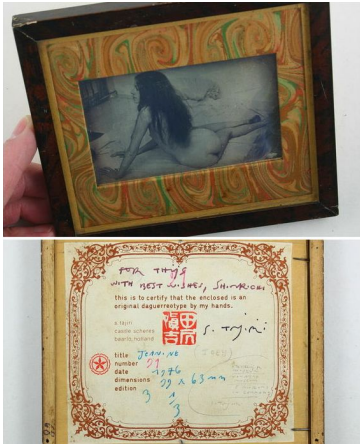 FOR THIJS
WITH BEST WISHES, SHINKICHI
this is to certify that the enclosed is an
original daguerreotype by my hands.
田尻
慎吉
s. tajiri
castle scheres
baarlo, holland
S. Tajiri
title JEANINE
number 99
date 1976
dimensions 99 x 63 mm
edition 3 1/3